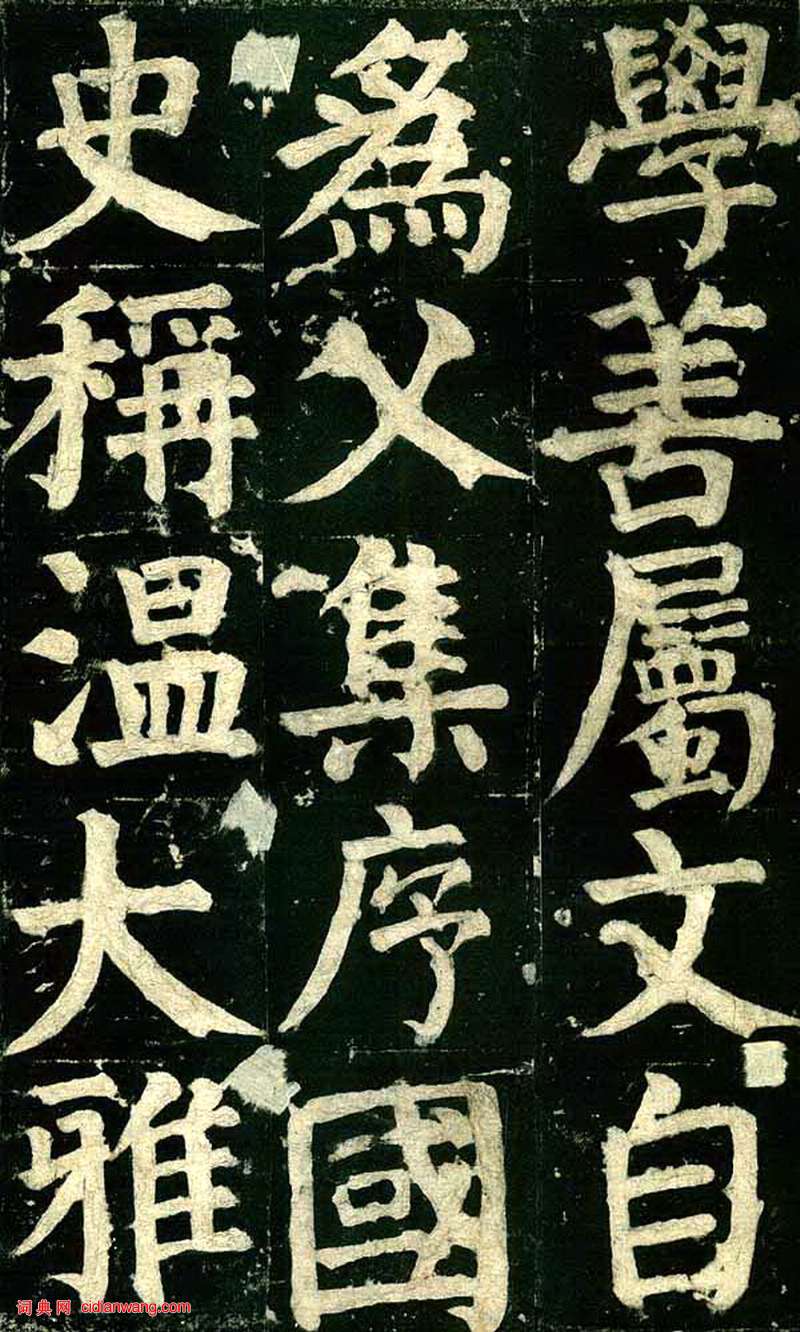 學善屬文自
為父集序國
史稱温大雅
词典网 cidianwang.com